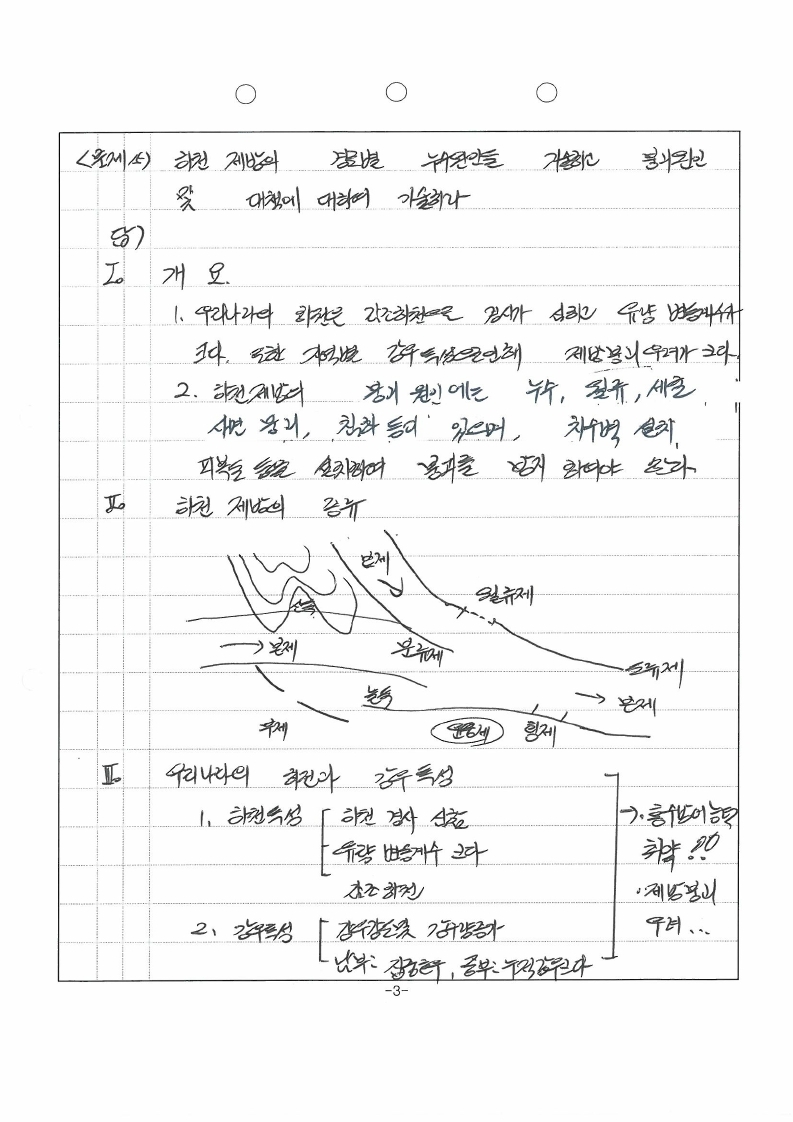 <문제 4) 하천 제방의 경로별 누수원인을 기술하고 붕괴원인
및 대책에 대하여 기술하라
답)
I. 개 요.
1. 우리나라의 하천은 하천으로 경사가 심하고 유량 변동계수가
크다. 또한 지역별 강우특성으로인해 제방붕괴 우려가 크다.
2. 하천제방의 붕괴 원인에는 누수, 월류, 세굴,
사면 붕괴, 침하 등이 있으며, 차수벽 설치,
피복도 등을 설치하여 붕괴를 방지 하여야 한다.
II. 하천 제방의 종류
본제
월류제
산록
→ 본제
분류제
도류제
놀둑
→ 본제
부제
윤중제
횡제
III. 우리나라의 하천과 강우특성
1. 하천특성 하천 경사 심함
유량 변동계수 크다
하천
2. 강우특성 강우강도및 강우량증가
남부: 집중호우, 중부: 누적강우크다
→ · 홍수방어능력
취약 !!
· 제방붕괴
우려...
-3-